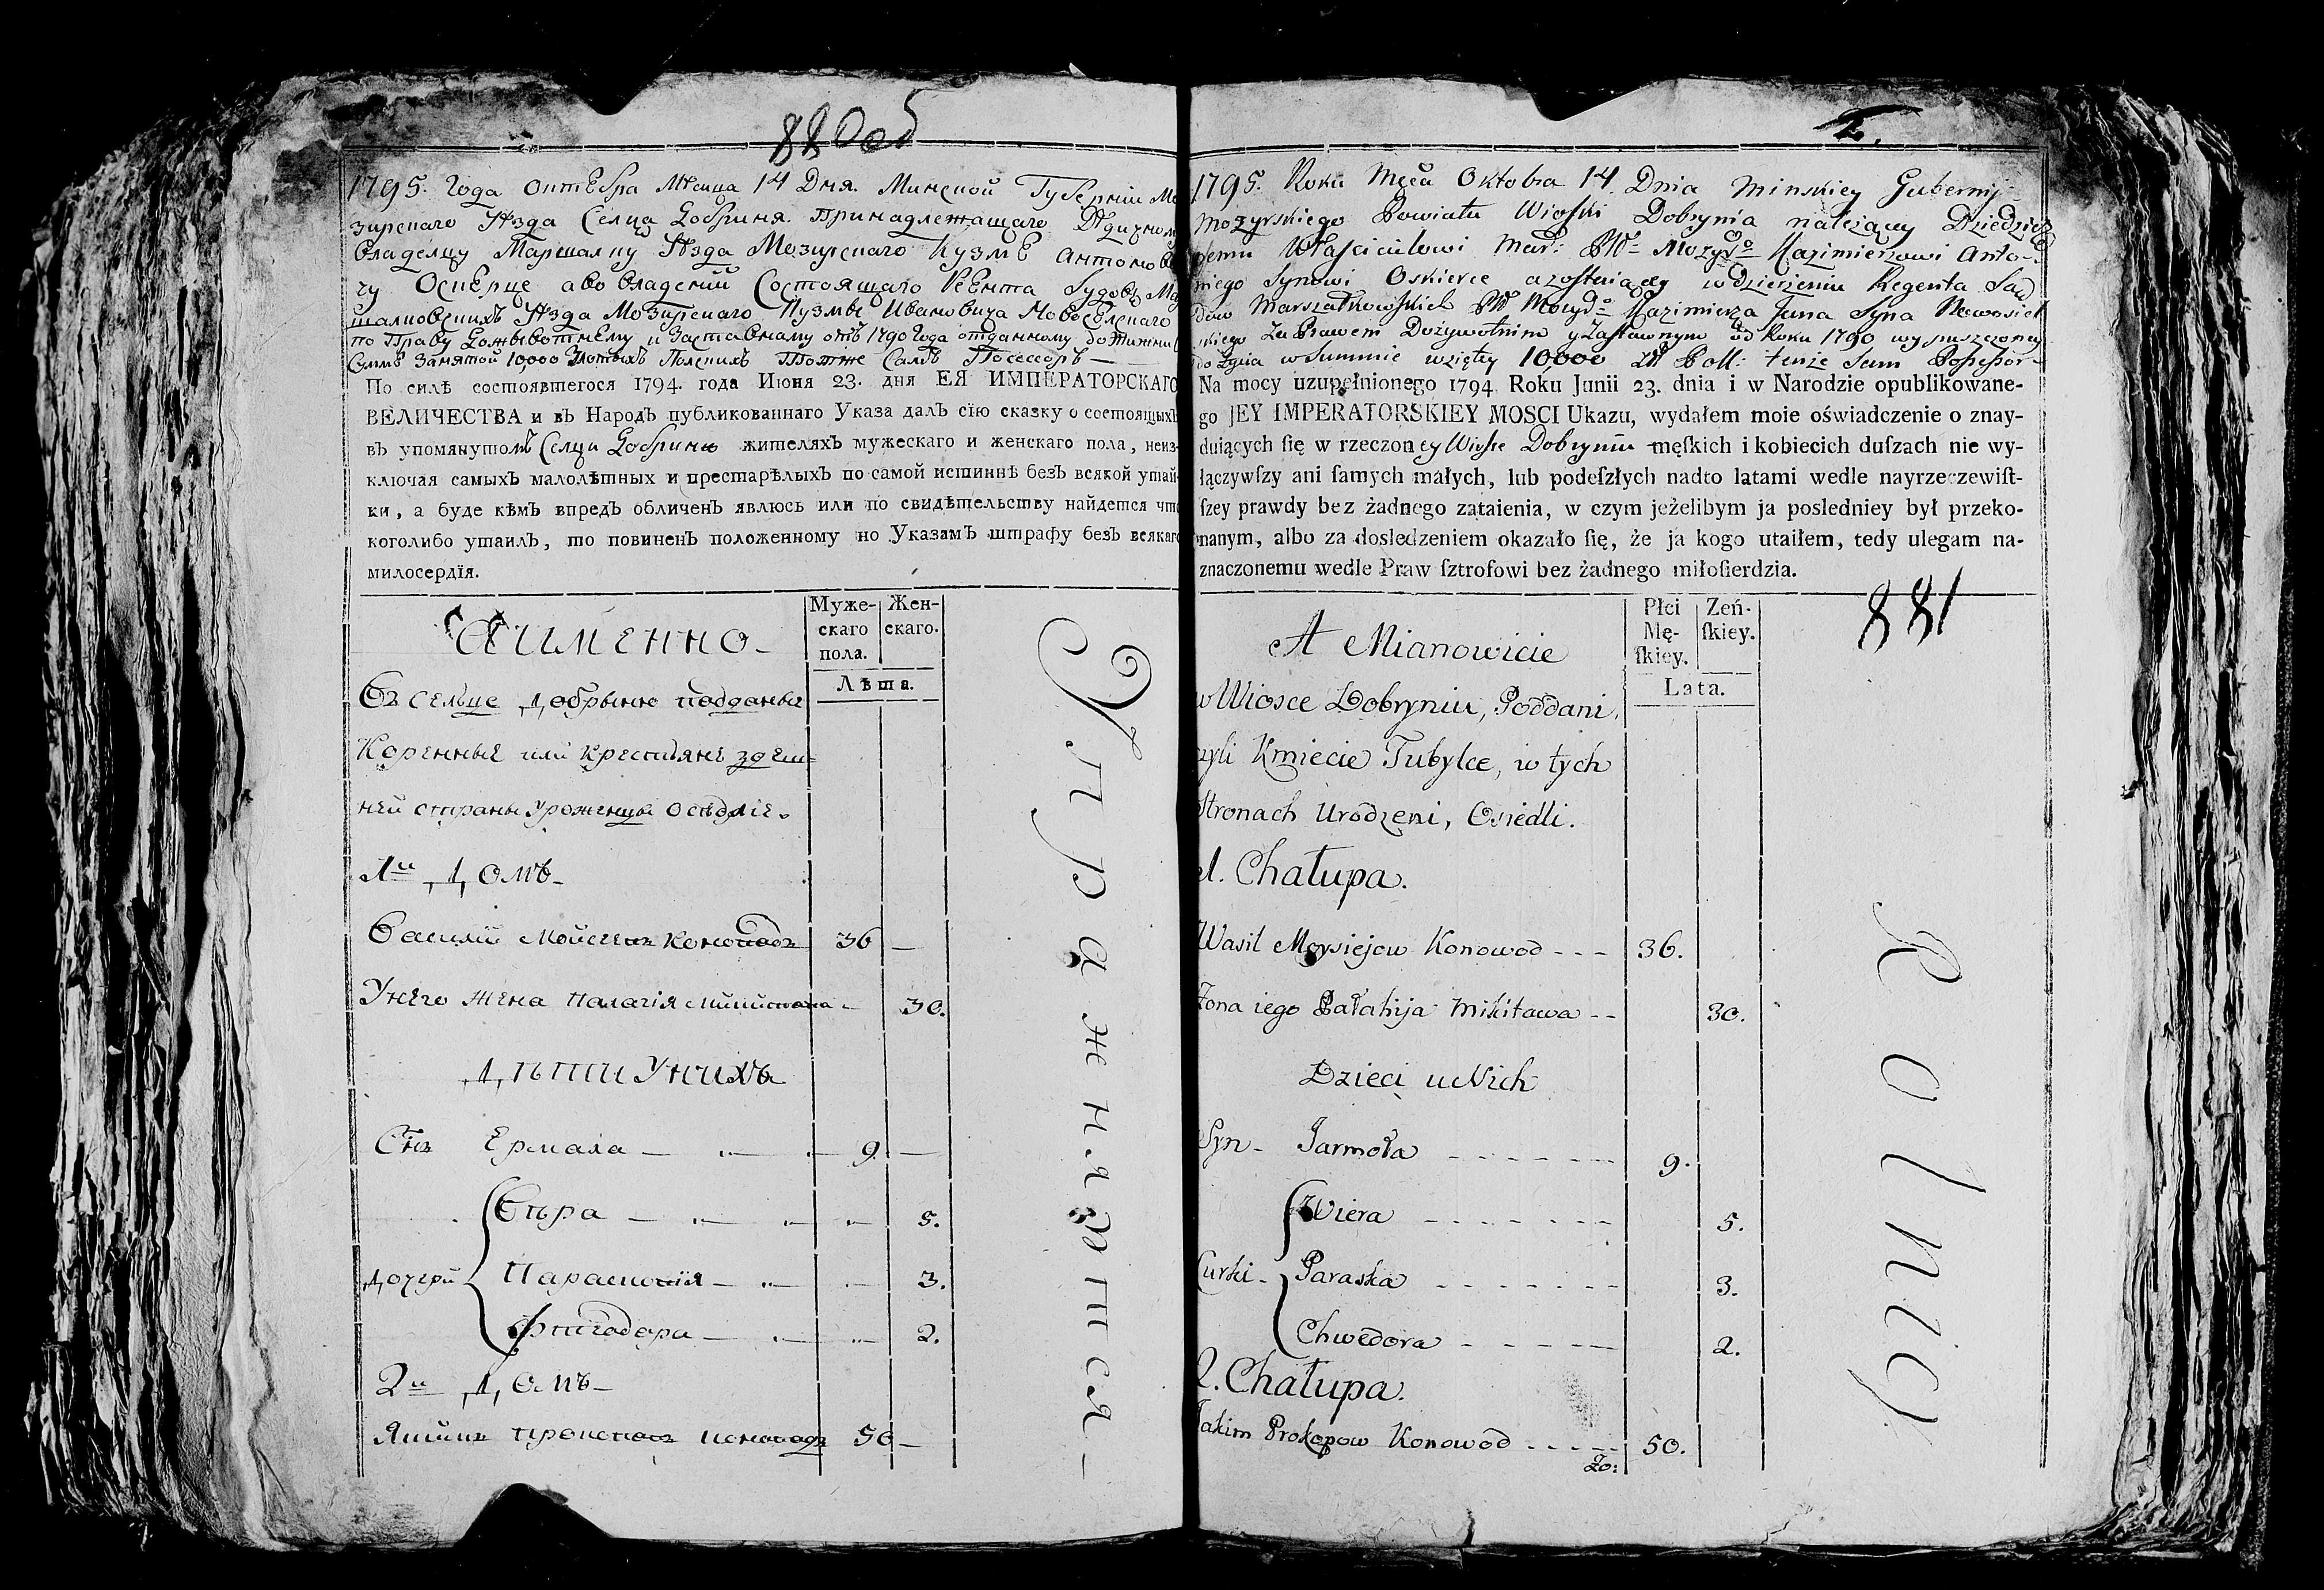 880об
1795. Года Октебра Месяца 14 Дня. Минской Губернии Мо
зирскаго Уезда Селца Добриня. Принадлежащаго Дедичном
Владелцу Маршалку Уезда Мозирскаго Кузме Антонов
чу Оскерце а во владении Состоящаго Реента Судовъ Ма
шалковскихъ Уезда Мозирскаго Кузмы Ивановича Новоселскаго
по Праву Дожывотнему и Заставному отъ 1790 Года отданному до
Суме Занятой 10,000 Злотыхъ Полскихъ Тотже Самъ Посессоръ —
По силѣ состоявшегося 1794. года Июня 23. дня ЕЯ ИМПЕРАТОРСКАГО
ВЕЛИЧЕСТВА и въ Народъ публикованнаго Указа далъ сїю сказку о состоящыхъ
въ упомянутомъ Селци Добриню жителяхъ мужескаго и женскаго пола, неиз-
ключая самыхъ малолѣтныхъ и престарѣлыхъ по самой истиннѣ безъ всякой утай-
ки, а буде кѣмъ впредъ обличенъ явлюсь или по свидѣтельству найдется что
коголибо утаилъ, то повиненъ положенному по Указамъ штрафу безъ всякаго
милосердїя.
Муже-
скаго
пола.
Жен-
скаго.
Лѣта.
Аименно-
Въ сельце Добрыню подданые
Коренные или крестьяне здеш=
ней стораны Уроженцы оседлые.
1й Домъ-
Василий Мойсеевъ Коновадъ 36 —
Унего жена Палагия Микитова - 30.
Дети Унихъ
Снъ Ермала — 9 —
Вѣра — 5.
дочери Параскивия — 3.
Фтеодора — 2.
2й Домъ-
Якимъ Прокоповъ Коновадъ 50 —
Упражняются —
2.
1795. Roku Męca Oktobra 14. Dnia Minskiey Guberniy
Mozyrskiego Powiatu Wioski Dobrynia należącey Dziedzicz
nemu Właścicielowi Mar: Pttu Mozyrgo Kazimierzowi Anto-
niego Synowi Oskierce a zostaiącey w dzierżeniu Regenta Sąd
dow Marszałkowskich Pttu Mozygo Kazimierza Jana Syna Nowosiel
skiego Za Prawem Dożywotnim y Zastawnym od Roku 1790 wypuszczoney
do życia w Summie wziętey 10,000 Zł Poll: tenże Sam Possessor-
Na mocy uzupełnionego 1794 Roku Junii 23. dnia i w Narodzie opublikowane-
go JEY IMPERATORSKIEY MOSCI Ukazu, wydałem moie oświadczenie o znay-
duiących ſię w rzeczoney Wiosce Dobryniu męſkich i kobiecich duſzach nie wy-
łączywſzy ani ſamych małych, lub podeſzłych nadto latami wedle nayrzeczewiſt-
ſzey prawdy bez żadnego zataienia, w czym jeżelibym ja posledniey był przeko-
nanym, albo za dosledzeniem okazało ſię, że ja kogo utaiłem, tedy ulegam na-
znaczonemu wedle Praw ſztrofowi bez żadnego miłoſierdzia.
Płci
Mę-
ſkiey.
Zeń-
ſkiey.
Lata.
881
A Mianowicie
w Wiosce Dobryniu, Poddani,
czyli Kmiecie Tubylce, w tych
Stronach Urodzeni, Osiedli.
1. Chałupa.
Wasil Moysiejow Konowod - - - 36.
Żona iego Pałahija Mikitawa - - 30.
Dzieci u Nich
Syn - Jarmoła - - - - - - 9.
Wiera - - - - - - 5.
Curki - Paraska - - - - - - 3.
Chwedora - - - - - 2.
2. Chałupa.
Jakim Prokopow Konowod - - - - - 50.
Żo:
Rolnicy